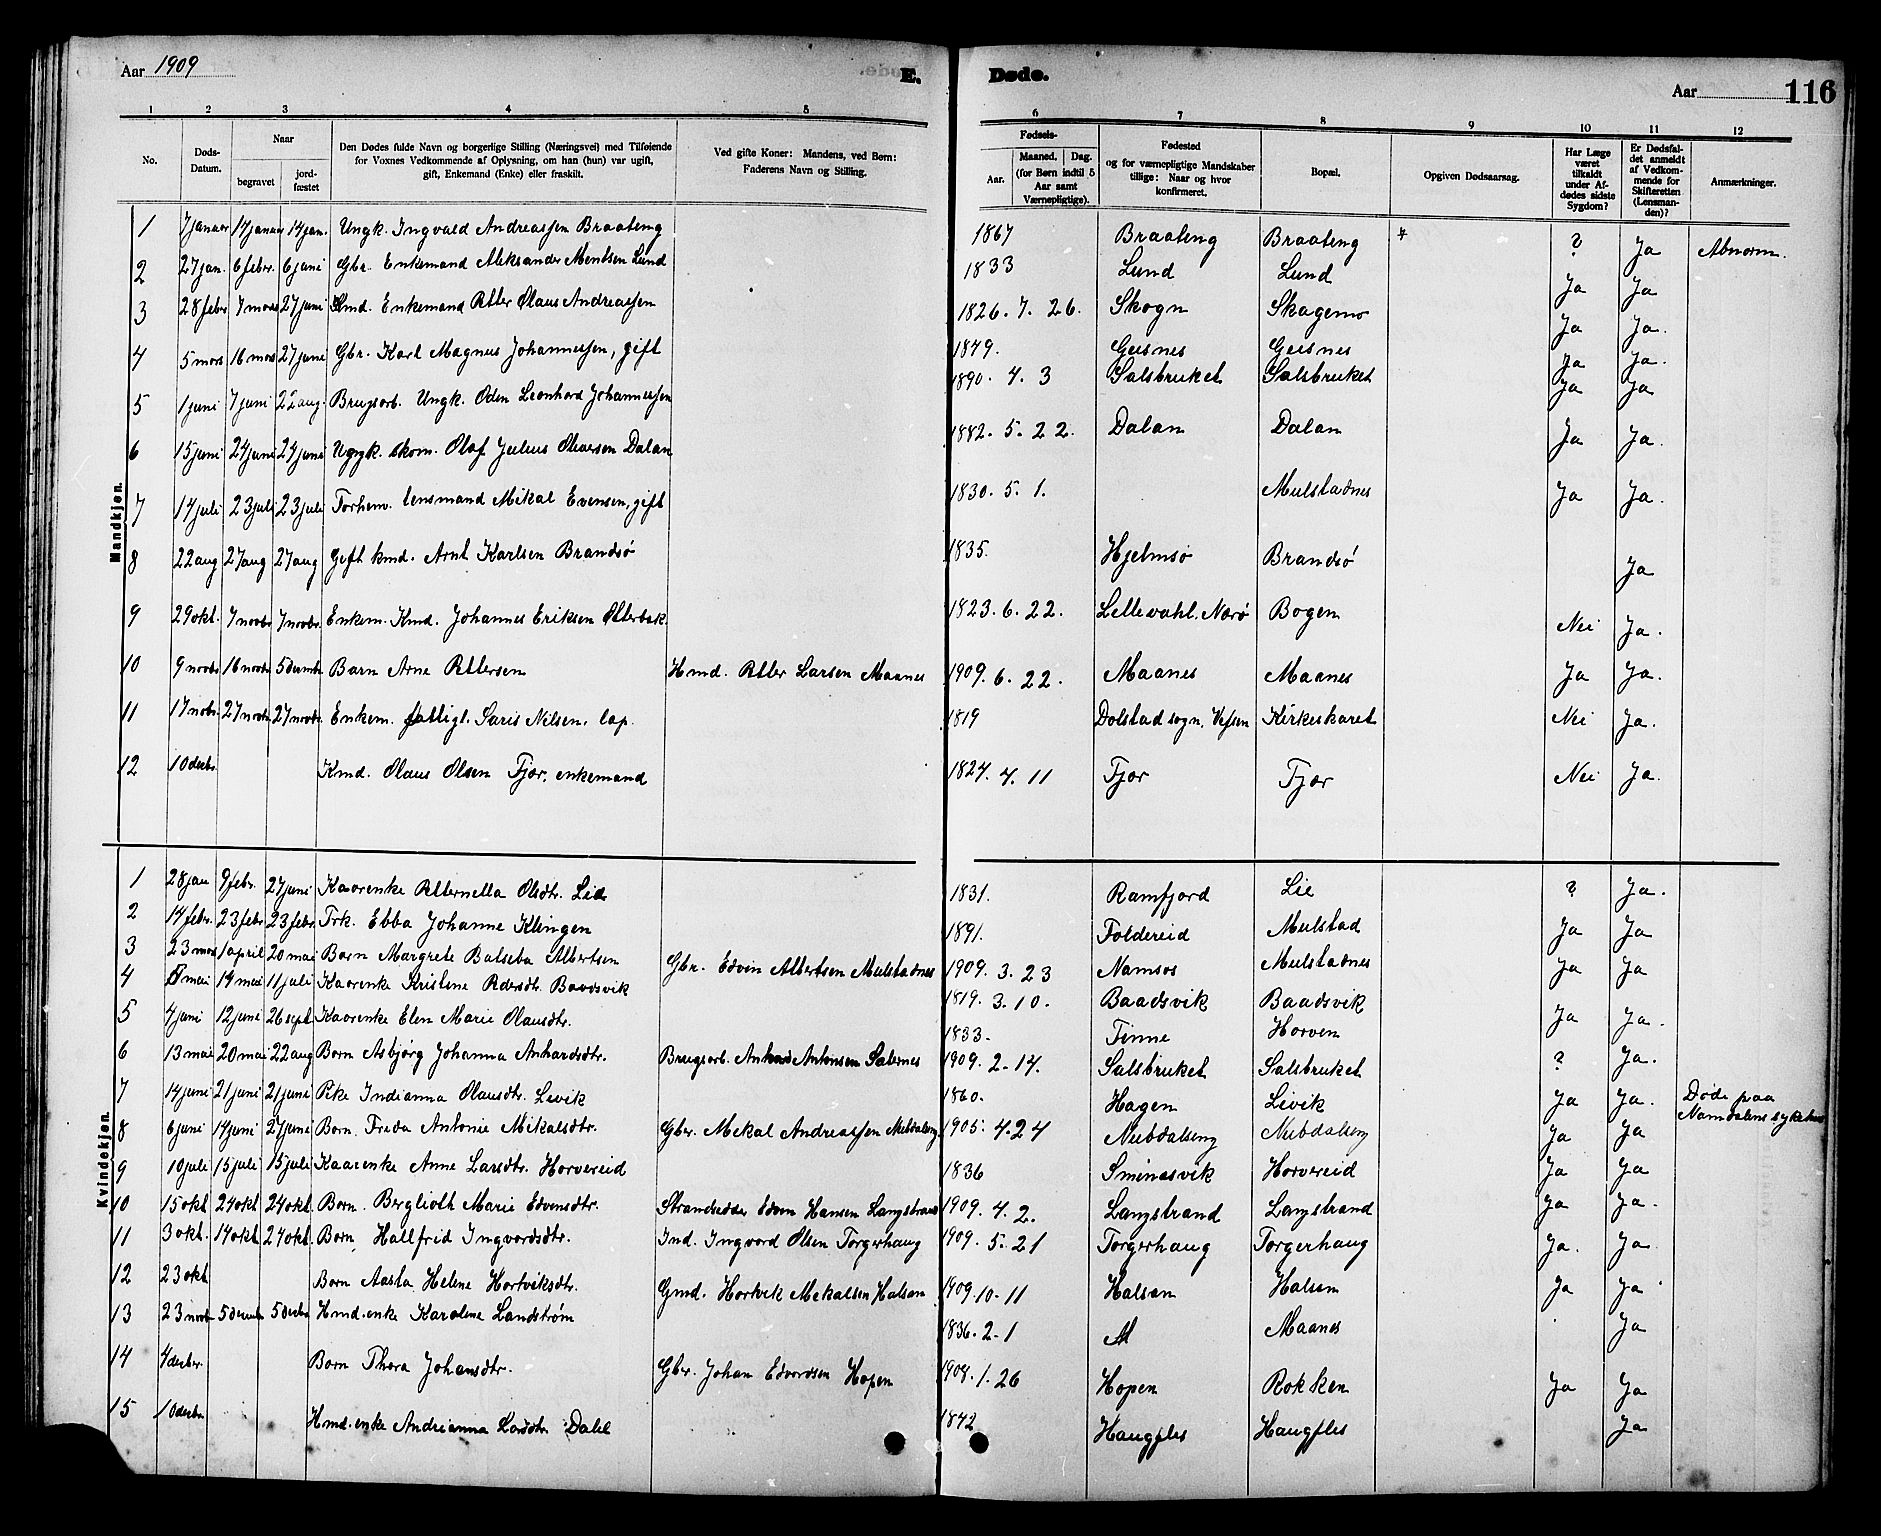 Aar 1909
E.
Døde.
Aar 116
1 2 3 4 5 6 7 8 9 10 11 12
No.
Døds-Datum.
Naar
begravet
jord-fæstet
Den Dødes fulde Navn og borgerlige Stilling (Næringsvei) med Tilføiende for Voxnes Vedkommende af Oplysning, om han (hun) var ugift, gift, Enkemand (Enke) eller fraskilt.
Ved gifte Koner: Mandens, ved Børn: Faderens Navn og Stilling.
Fødsels-
Aar.
Maaned. Dag.
(for Børn indtil 5 Aar samt Værnepligtige).
Fødested og for værnepligtige Mandskaber tillige: Naar og hvor konfirmeret.
Bopæl.
Opgiven Dødsaarsag.
Har Læge været tilkaldt under Afdødes sidste Sygdom?
Er Dødsfaldet anmeldt af Vedkommende for Skifteretten (Lensmanden)?
Anmærkninger.
Mandkjøn.
1 7 januar 14 januar 14 jan. Ungk. Ingvald Andreassen Braateng 1867 Braateng Braateng ? Ja Abnorm.
2 27 jan. 6 febr. 6 juni Gbr. Enkemand Aleksander Mentsen Lund 1833 Lund Lund Ja Ja
3 28 febr 7 mars 27 juni Kmd. Enkemand Olaus Andreassen 1826. 7. 26. Skogn Skagemo Ja Ja.
4 5 mars 16 mars 27 juni Gbr. Karl Magnus Johannessen, gift 1849. Geisnes Geisnes Ja Ja.
5 1 juni 7 juni 22 aug. Brugsarb. Ungk. Oden Leonhard Johannessen 1890. 4. 3 Salsbruket Salsbruket Ja Ja
6 15 juni 24 juni 24 juni Ungk. skom. Olaf Julius Olversen Dalan 1882. 5. 22. Dalan Dalan Ja Ja.
7 14 juli 23 juli 23 juli Forhenv. lensmand Mikal Evensen, gift 1830. 5. 1. Mulstadnes Ja Ja.
8 22 aug 27 aug 27 aug Gift kmd. Arnt Karlsen Brandsø 1835. Hjelmsø Brandsø Ja
9 29 okt. 7 novbr. 7 novbr. Enkem. Kmd. Johannes Eriksen 1823. 6. 22. Lillevahl. Nærø Bogen Nei Ja.
10 9 novbr 16 novbr 5 decmbr Barn Arne Pettersen Hmd. Petter Larsen Maanes 1909. 6. 22. Maanes Maanes Ja Ja.
11 17 nobr. 27 novbr 27 novbr. Enkem. fattigl. Saris Nilsen. lap. 1819 Dolstad sogn, Vefsen Kirkeskaret Nei Ja.
12 10 decbr. Kmd. Olaus Olsen Fjær, enkemand 1824. 4. 11 Fjær Fjær Nei Ja.
Kvindekjøn.
1 28 jan 9 febr. 27 juni Kaarenke Petternella Olsdtr. Lie 1831. Ramfjord Lie ? Ja.
2 14 febr. 23 febr 23 febr. Frk. Ebba Johanne Klingen 1891. Foldereid Mulstad Ja Ja
3 23 mars 1 april 20 mai Barn Margrete Batseba Albertsen Gbr. Edvin Albertsen Mulstadnes 1909. 3. 23 Namsos Mulstadnes Ja Ja
4 mai 14 mai 11 juli Kaarenke Kristine Pedersdt. Baadsvik 1819. 3. 10. Baadsvik Baadsvik Ja Ja.
5 4 juni 12 juni 26 sept Kaarenke Elen Marie Olausdtr. 1833. Finne Horven ? Ja.
6 13 mai 20 mai 22 aug Barn Asbjørg Johanna Anhardsdtr. Brugsarb. Antonsen Salsnes 1909. 2. 14. Salsbruket Salsbruket
7 14 juni 21 juni 21 juni Pike Indianna Olausdtr. Livik 1860. Hagen Livik Ja Ja. Døde paa Namdalens sykehus
8 6 juni 14 juni 27 juni Barn. Frida Antonie Mikalsdtr. Gbr. Mikal Andreassen Nubdalseng 1905. 4. 24 Nubdalseng Nubdalseng Ja Ja
9 10 juli 15 juli 15 juli Kaarenke Anne Larsdtr. Horvereid 1836 Sminesvik Horvereid Ja Ja
10 15 okt 24 okt 24 okt. Barn. Berglioth Marie Edvinsdtr. Strandsidder Edvin Hansen Langstrand 1909. 4. 2. Langstrand Langstrand Ja Ja.
11 3 okt. 14 okt. 24 okt. Barn Hallfrid Ingvardsdtr. Ind. Ingvard Olsen Torgerhaug 1909. 5. 21 Torgerhaug Torgerhaug Ja. Ja
12 23 okt Barn Aasta Helene Hartviksdtr. Gmd. Hartvik Mikalsen Halsan 1909. 10. 11 Halsan Halsan Ja Ja
13 23 novbr 5 decmbr 5 decbr Hmd. enke Karoline Landstrøm 1836. 2. 1 M Maanes Ja
14 4 decbr. Barn Thora Johansdtr. Gbr. Johan Edvardsen Hopen 1908. 1. 26 Hopen Rokken Ja Ja
15 10 decbr Hmd. enke Andrianna Larsdtr. Dahl 1842 Haugfles Haugfles Ja